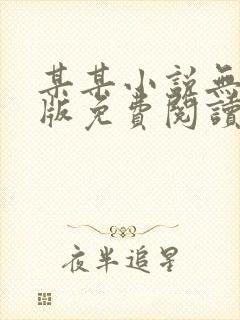 某某小說無
版免費閱讀
夜半追星